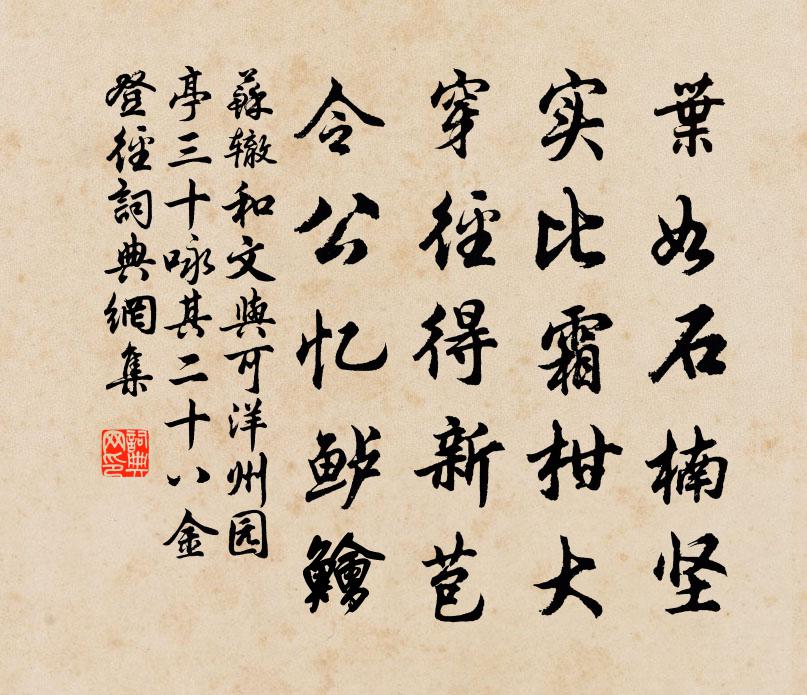 葉如石楠坚
实比霜柑大
穿徑得新苞
令公忆鲈鱠
蘇辙和文與可洋州园
亭三十咏其二十八金
登徑詞典網集
詞典网印